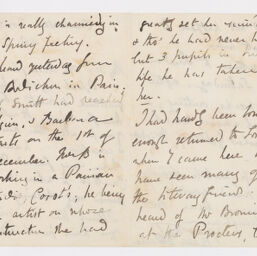 is really charming in
Spiing feeling.
heard yesterday from
Bodichon in Paris.
Smith had reached
& Barbara
on the 1st of
December. Mrs B is
working in a Parisian
Corot's, he being
artist on whose
instruction she had
greatly set her
& tho' he had never h
but 3 pupils in
life he has taken
her.
I had hardly been long
enough returned to Lon
when I came here
have seen many of
the literary friend
heard of Mr Brown
at the Procters,